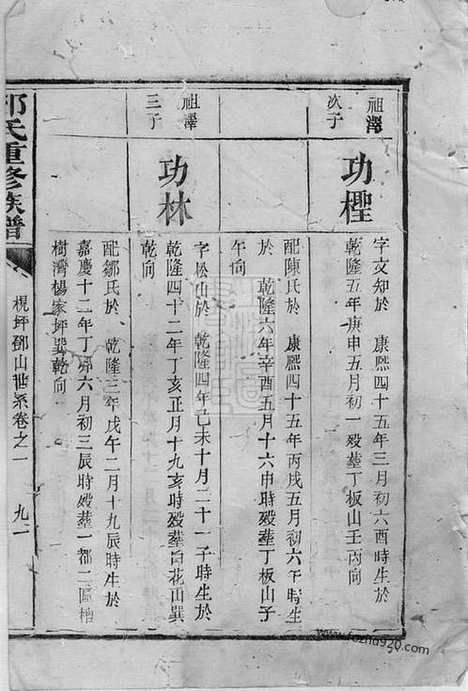 祖澤
次子
功檉
字文知於　康熙四十五年三月初六酉時生於
乾隆五年庚申五月初一殁塟丁板山壬丙向
配陳氏於　康熙四十五年丙戌五月初六午時生
於　乾隆六年辛酉五月十六申時殁塟丁板山子
午向
祖澤
三子
功林
字松山於　乾隆四年己未十月二十一子時生於
乾隆四十二年丁亥正月十九亥時殁塟白花山巽
乾向
配鄒氏於　乾隆三年戊午二月十九辰時生於
嘉慶十二年丁卯六月初三辰時殁塟一都二區楂
樹灣楊家坪巽乾向
氏重修族譜
梘坪鄧山世系卷之一
九一
www.fozhu920.com